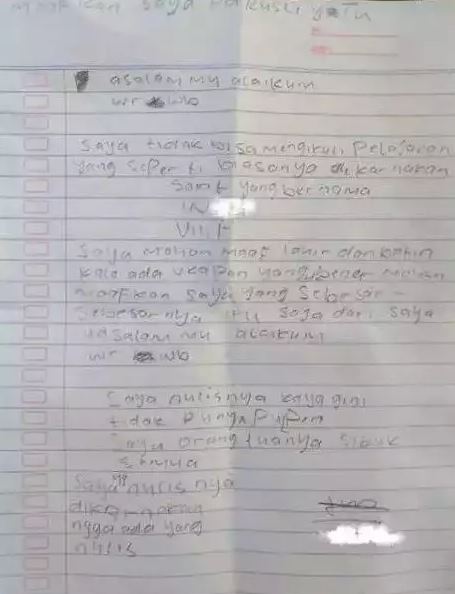 maafkan saya
asalam mu alaikum
wr wb
Saya tidak bisa mengikuti Pelajaran
yang seperti biasanya di karnakan
Sakit yang bernama
VIII F
Saya mohon maaf lahir dan batin
kalo ada ucapan yang
maafkan saya yang Sebesar
Sebesar nya itu saja dari saya
wasalam mu alaikum
wr wb
Saya nulisnya kaya gini
tidak Punya PulPen
Saya orang tuanya Sibuk
Semua
Saya nulis nya
dikarnakan
ngga ada yang
nulis